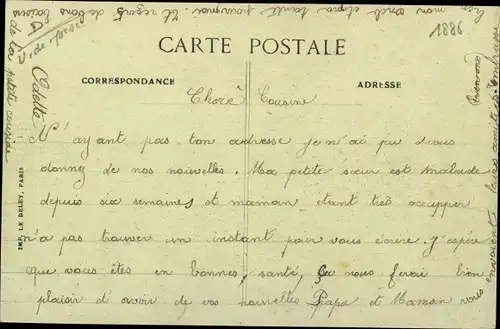 1886
CARTE POSTALE
CORRESPONDANCE
ADRESSE
Cherè Cousine
N'ayant pas ton adresse je n'ai pu vous
donnez de nos nouvelles. Ma petite sœur est malade
depuis six semaines et maman etant très occupper
n'a pas trouver un instant pour vous écrire. J'espère
que vous êtes en bonnes, santé, ça nous ferai bien
plaisir d'avoir de vos nouvelles Papa et Maman vous
envoient
mon oncle et
Et reçois de bons baisers
de la petite cousine
Odette
IMP. LE DELEY, PARIS